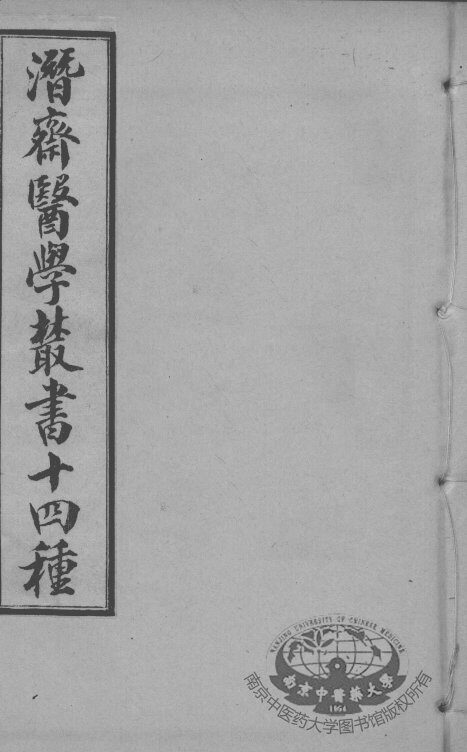 潛齋醫學叢書十四種
NANJING UNIVERSITY OF CHINESE MEDICINE
南京中醫藥大學
1954
南京中医药大学图书馆版权所有